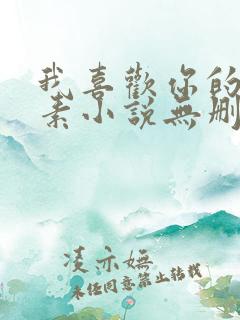 我喜歡你的
素小說無刪
凌亦嫵
未经同意禁止转载